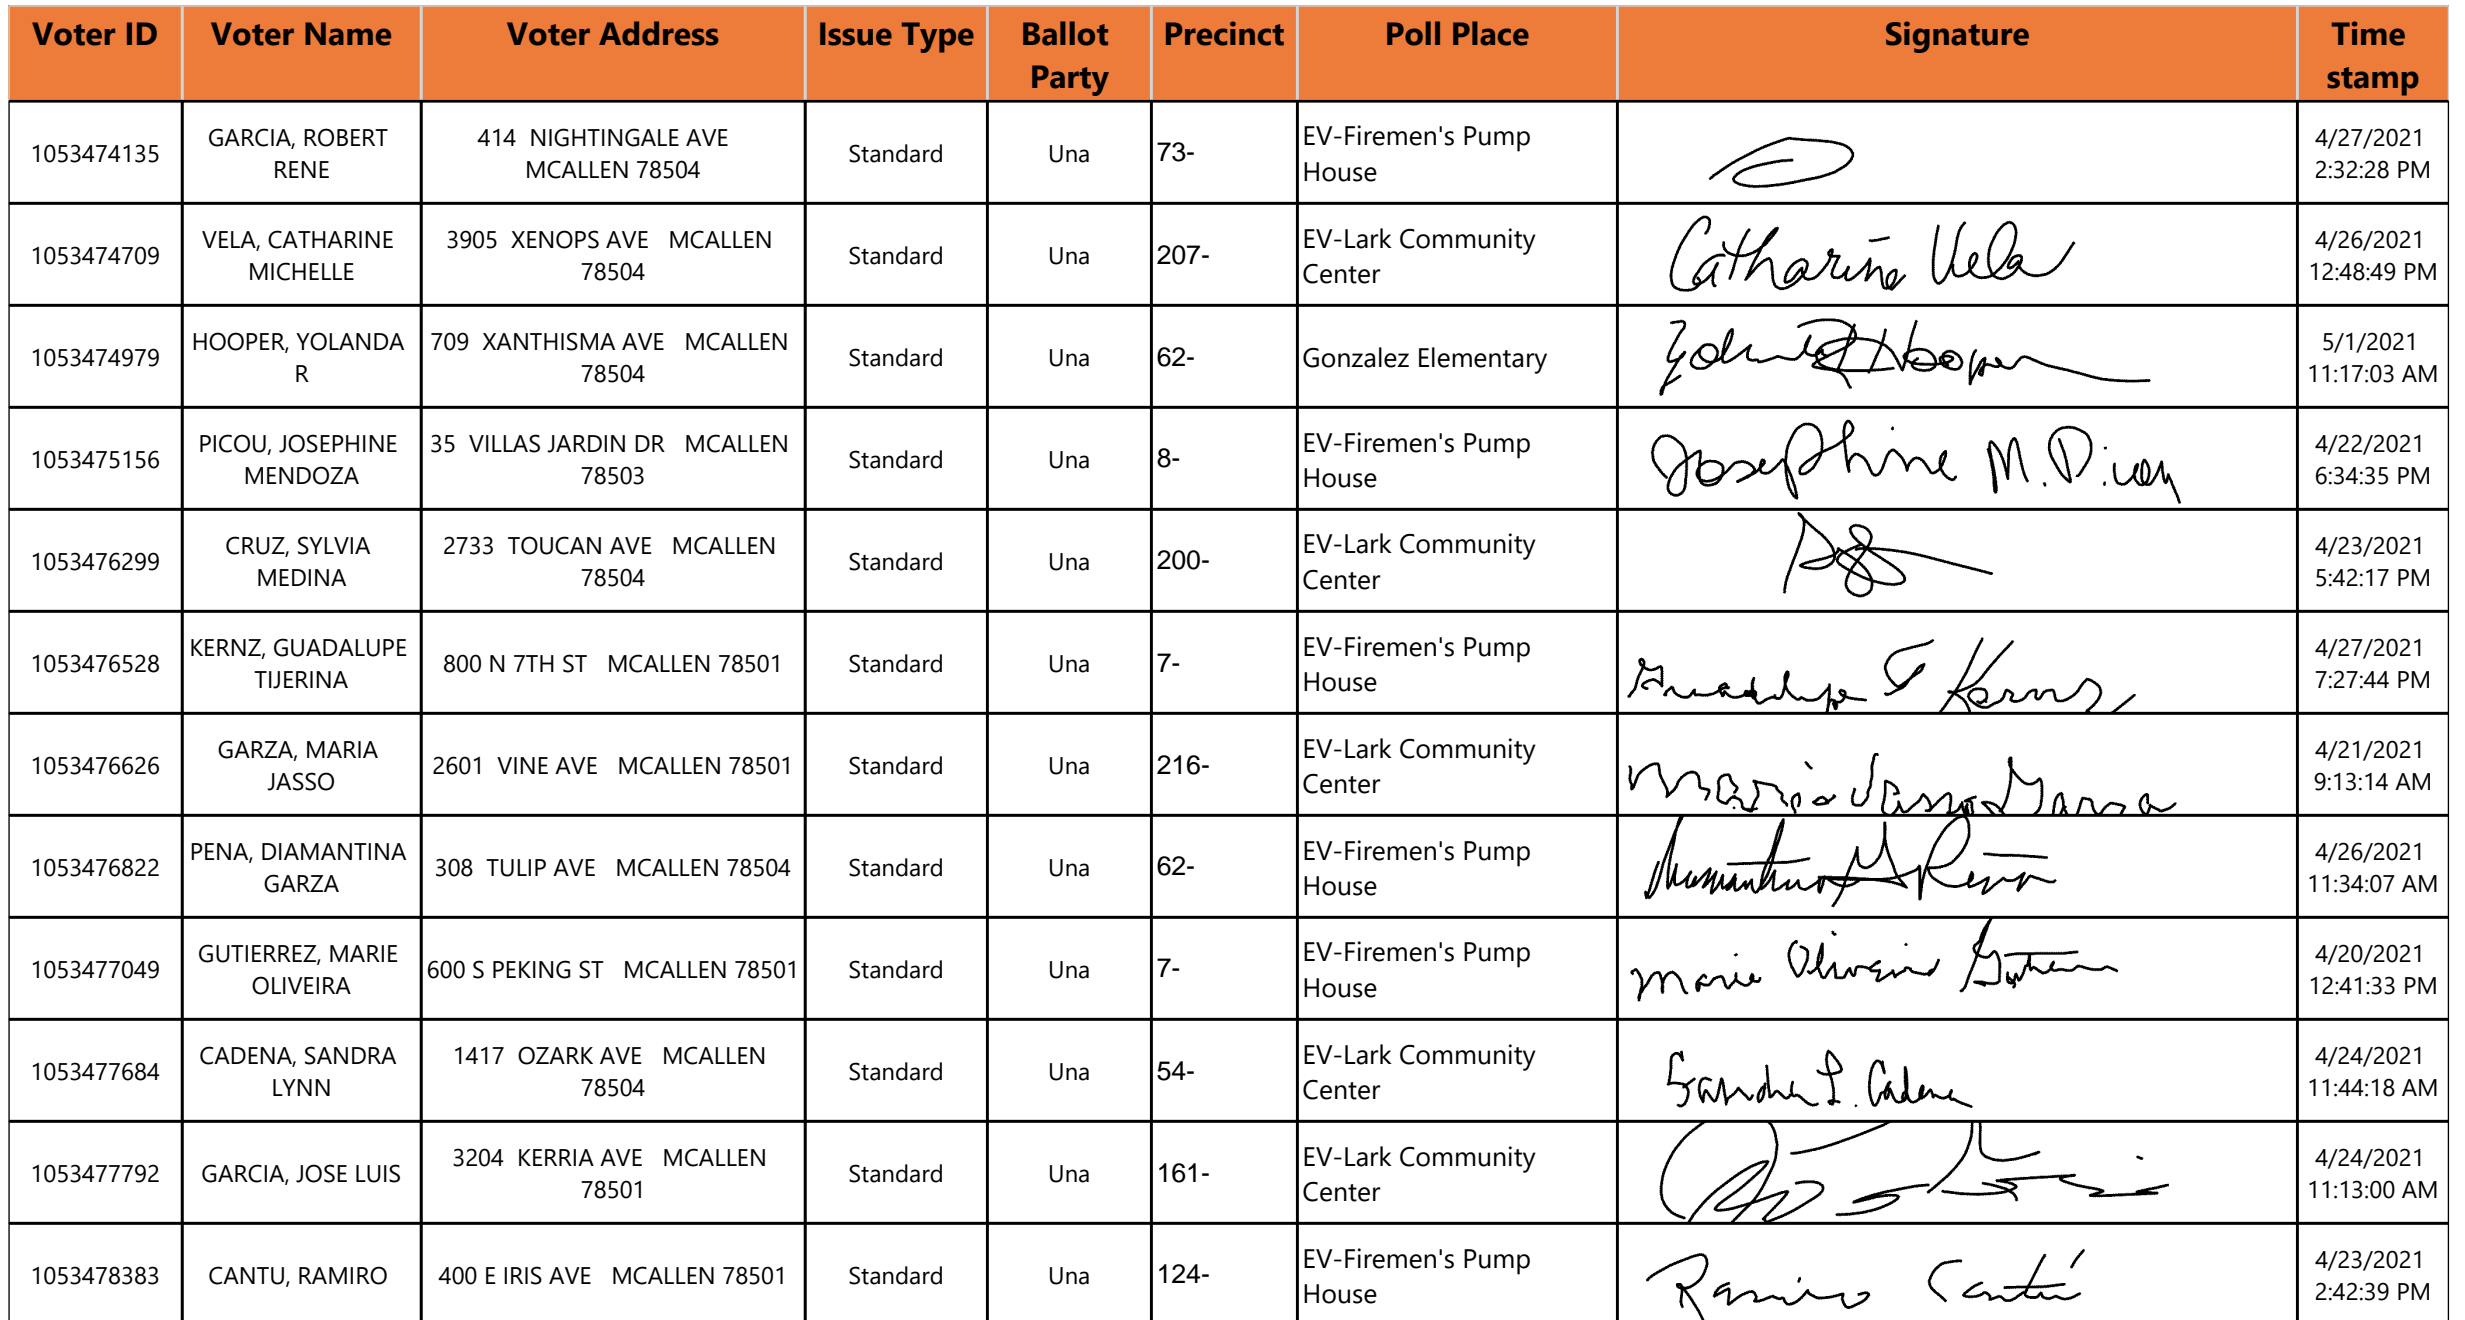 Voter ID Voter Name Voter Address Issue Type Ballot Party Precinct Poll Place Signature Time stamp
1053474135 GARCIA, ROBERT RENE 414 NIGHTINGALE AVE MCALLEN 78504 Standard Una 73- EV-Firemen's Pump House 4/27/2021 2:32:28 PM
1053474709 VELA, CATHARINE MICHELLE 3905 XENOPS AVE MCALLEN 78504 Standard Una 207- EV-Lark Community Center Catharine Vela 4/26/2021 12:48:49 PM
1053474979 HOOPER, YOLANDA R 709 XANTHISMA AVE MCALLEN 78504 Standard Una 62- Gonzalez Elementary Hooper 5/1/2021 11:17:03 AM
1053475156 PICOU, JOSEPHINE MENDOZA 35 VILLAS JARDIN DR MCALLEN 78503 Standard Una 8- EV-Firemen's Pump House Josephine M. Picou 4/22/2021 6:34:35 PM
1053476299 CRUZ, SYLVIA MEDINA 2733 TOUCAN AVE MCALLEN 78504 Standard Una 200- EV-Lark Community Center 4/23/2021 5:42:17 PM
1053476528 KERNZ, GUADALUPE TIJERINA 800 N 7TH ST MCALLEN 78501 Standard Una 7- EV-Firemen's Pump House Guadalupe T Kernz 4/27/2021 7:27:44 PM
1053476626 GARZA, MARIA JASSO 2601 VINE AVE MCALLEN 78501 Standard Una 216- EV-Lark Community Center Maria Jasso Garza 4/21/2021 9:13:14 AM
1053476822 PENA, DIAMANTINA GARZA 308 TULIP AVE MCALLEN 78504 Standard Una 62- EV-Firemen's Pump House 4/26/2021 11:34:07 AM
1053477049 GUTIERREZ, MARIE OLIVEIRA 600 S PEKING ST MCALLEN 78501 Standard Una 7- EV-Firemen's Pump House Marie Oliveira 4/20/2021 12:41:33 PM
1053477684 CADENA, SANDRA LYNN 1417 OZARK AVE MCALLEN 78504 Standard Una 54- EV-Lark Community Center Sandra L. Cadena 4/24/2021 11:44:18 AM
1053477792 GARCIA, JOSE LUIS 3204 KERRIA AVE MCALLEN 78501 Standard Una 161- EV-Lark Community Center 4/24/2021 11:13:00 AM
1053478383 CANTU, RAMIRO 400 E IRIS AVE MCALLEN 78501 Standard Una 124- EV-Firemen's Pump House Ramiro Cantú 4/23/2021 2:42:39 PM